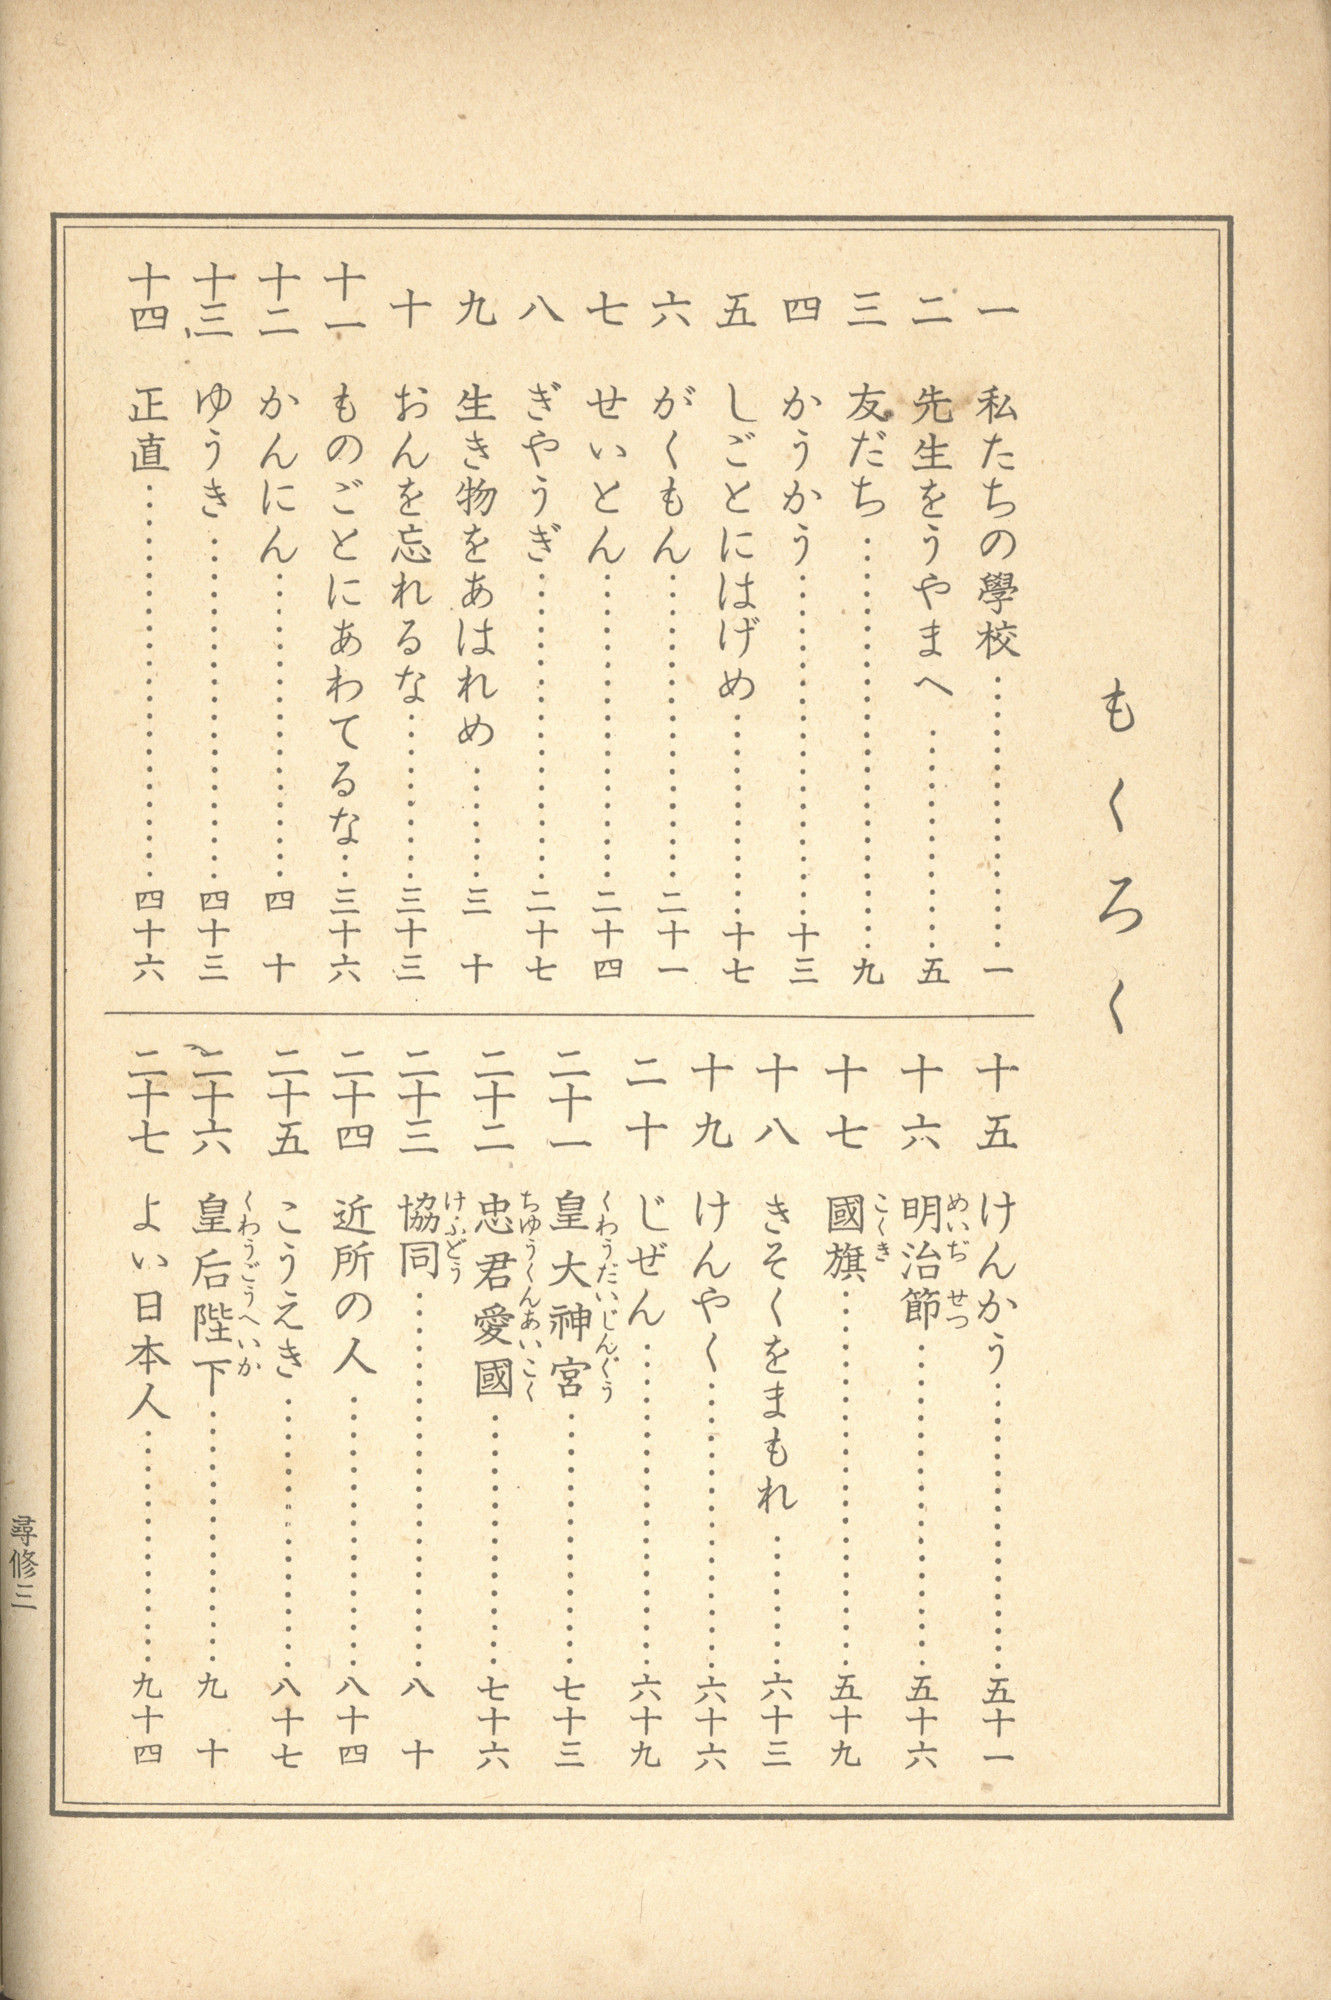 もくろく
一 私たちの學校……………………一
二 先生をうやまへ……………………五
三 友だち……………………九
四 かうかう……………………十三
五 しごとにはげめ……………………十七
六 がくもん……………………二十一
七 せいとん……………………二十四
八 ぎやうぎ……………………二十七
九 生き物をあはれめ……………………三十
十 おんを忘れるな……………………三十三
十一 ものごとにあわてるな……三十六
十二 かんにん……………………四十
十三 ゆうき……………………四十三
十四 正直……………………四十六
十五 けんかう……………………五十一
十六 明治節……………………五十六
めいぢ せつ
十七 國旗……………………五十九
こくき
十八 きそくをまもれ……………………六十三
十九 けんやく……………………六十六
二十 じぜん……………………六十九
二十一 皇大神宮……………………七十三
くわうだいじんぐう
二十二 忠君愛國……………………七十六
ちゆうくんあいこく
二十三 協同……………………八十
けふどう
二十四 近所の人……………………八十四
二十五 こうえき……………………八十七
二十六 皇后陛下……………………九十
くわうごうへいか
二十七 よい日本人……………………九十四
尋修三